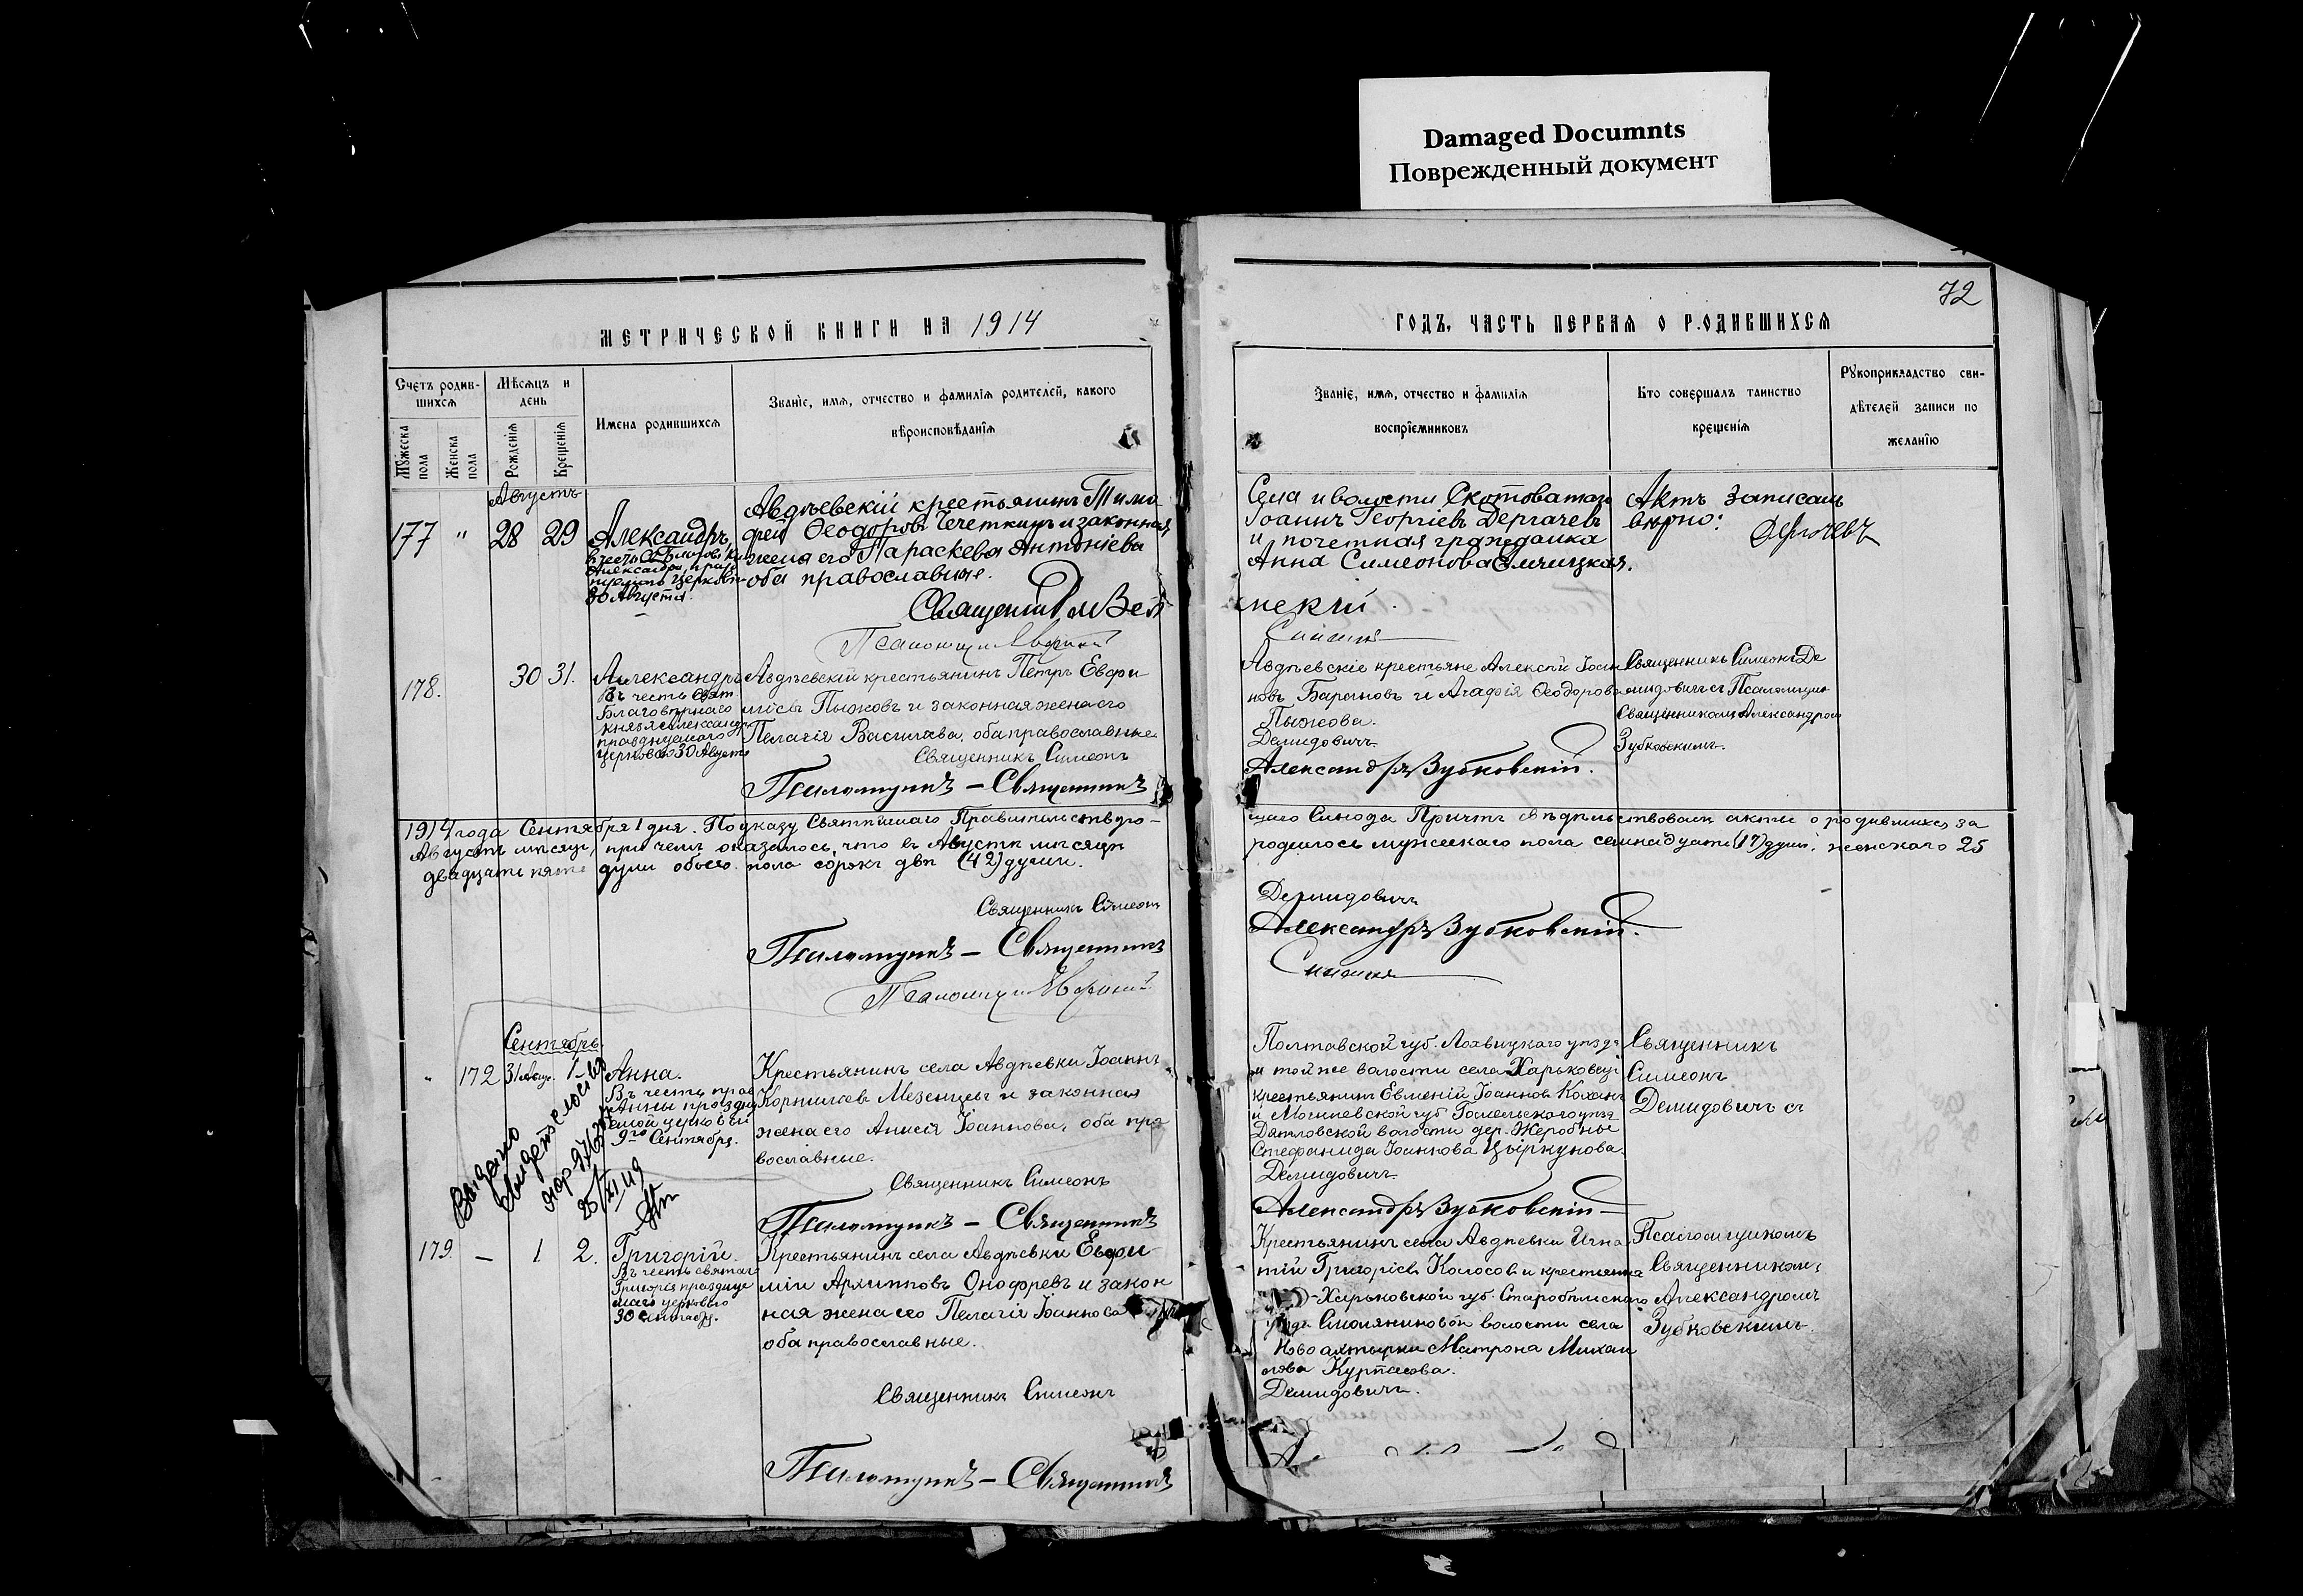 Damaged Documnts
Поврежденный документ
72
МЕТРИЧЕСКОЙ КНИГИ НА 1914
ГОДЪ, ЧАСТЬ ПЕРВАЯ О РОДИВШИХСЯ
Счетъ родив-
шихся
Мѣсяцъ и
день
Мужеска
пола
Женска
пола
Рожденія
Крещенія
Имена родившихся
Званіе, имя, отчество и фамилія родителей, какого
вѣроисповѣданія
Званіе, имя, отчество и фамилія
воспріемниковъ
Кто совершалъ таинство
крещенія
Рукоприкладство сви-
дѣтелей записи по
желанію
Августъ
177 " 28 29
Александръ,
Александра, празд
30 Августа.
Авдѣевскій крестьянинъ Тимо
фей Ѳеодоровъ Чечеткинъ и законная
жена его Параскева Антоніева
оба православные.
Села и волости Скотоватаго
Іоаннъ Георгіевъ Дергачевъ
и почетная гражданка
Анна Симеонова
Актъ записанъ
вѣрно:
178. 30 31.
Александръ
Въ честь Свят
Благовѣрнаго
князя Александра
празднуемаго
церковью 30 Августа
Авдѣевскій крестьянинъ Петръ Евфи
міевъ Пыжовъ и законная жена его
Пелагія Васильева, оба православные.
Священникъ Симеонъ
Псаломщикъ – Священникъ
Авдѣевскіе крестьяне Алексѣй Іоан
новъ Барановъ и Агафія Ѳеодорова
Пыжова.
Демидовичъ
Александръ Зубковскій.
Священникъ Симеонъ Де
мидовичъ съ Псаломщик
Священникомъ Александромъ
Зубковскимъ.
1914 года Сентября 1 дня. По указу Святѣйшаго Правительствую-
щаго Синода Причтъ свѣдѣтельствовалъ акты о родившихся за
Августъ мѣсяцъ, при чемъ оказалось, что въ Августѣ мѣсяцѣ
родилось мужескаго пола семнадцать (17) душъ, женскаго 25
двадцать пять душъ обоего пола сорокъ двѣ (42) души.
Священникъ Симеонъ
Демидовичъ
Псаломщикъ – Священникъ
Александръ Зубковскій.
Сентябрь.
" 172 31 Авг. 1
Анна.
Въ честь прав
Анны празднуе
емой церковью
9го Сентября.
Крестьянинъ села Авдѣевки Іоаннъ
Корниліевъ Мезенцевъ и законная
жена его Анисія Іоаннова, оба пра
вославные.
Священникъ Симеонъ
Псаломщикъ – Священникъ
Полтавской губ. Лохвицкаго уѣзда
и той же волости села Харьковецъ
крестьянинъ Евменій Іоанновъ Коханъ
и Могилевской губ. Гомельскаго уѣзд
Дятловской волости дер. Жеробные
Стефанида Іоаннова Цыркунова.
Демидовичъ
Александръ Зубковскій
Священникъ
Симеонъ
Демидовичъ съ
Выдано
свидетельство
179. – 1 2.
Григорій.
Въ честь святаго
Григорія празднуе
маго церковью
30 Сентября.
Крестьянинъ села Авдѣевки Евфи
мій Архипповъ Онофревъ и закон
ная жена его Пелагія Іоаннова
оба православные.
Священникъ Симеонъ
Псаломщикъ – Священникъ
Крестьянинъ села Авдѣевки Игна
тій Григоріевъ Колосовъ и крестьянка
Харьковской губ. Старобѣльскаго
уѣзда Смоляниновой волости села
Новоахтырки Матрона Михаи
лова Курпасова.
Демидовичъ.
Псаломщикомъ
Священникомъ
Александромъ
Зубковскимъ.